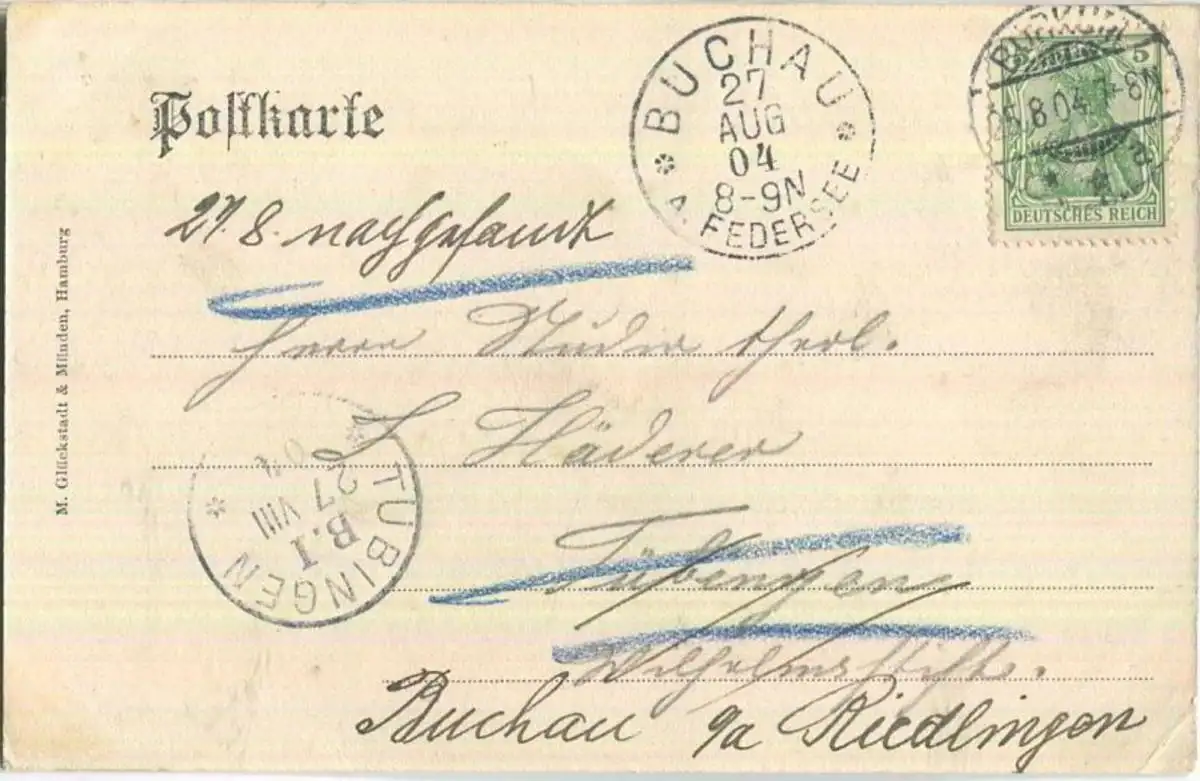 Postkarte
BUCHAU
27
AUG
04
8-9N
A. FEDERSEE
5
25.8.04.7-8N
a
DEUTSCHES REICH
27. 8. nachgesandt
M. Glückstadt & Münden, Hamburg
Herrn Studior theol.
L Häderer
TÜBINGEN
B.I
27 VIII
04
Tübingen
Wilhelmsstift.
Buchau a Riedlingen